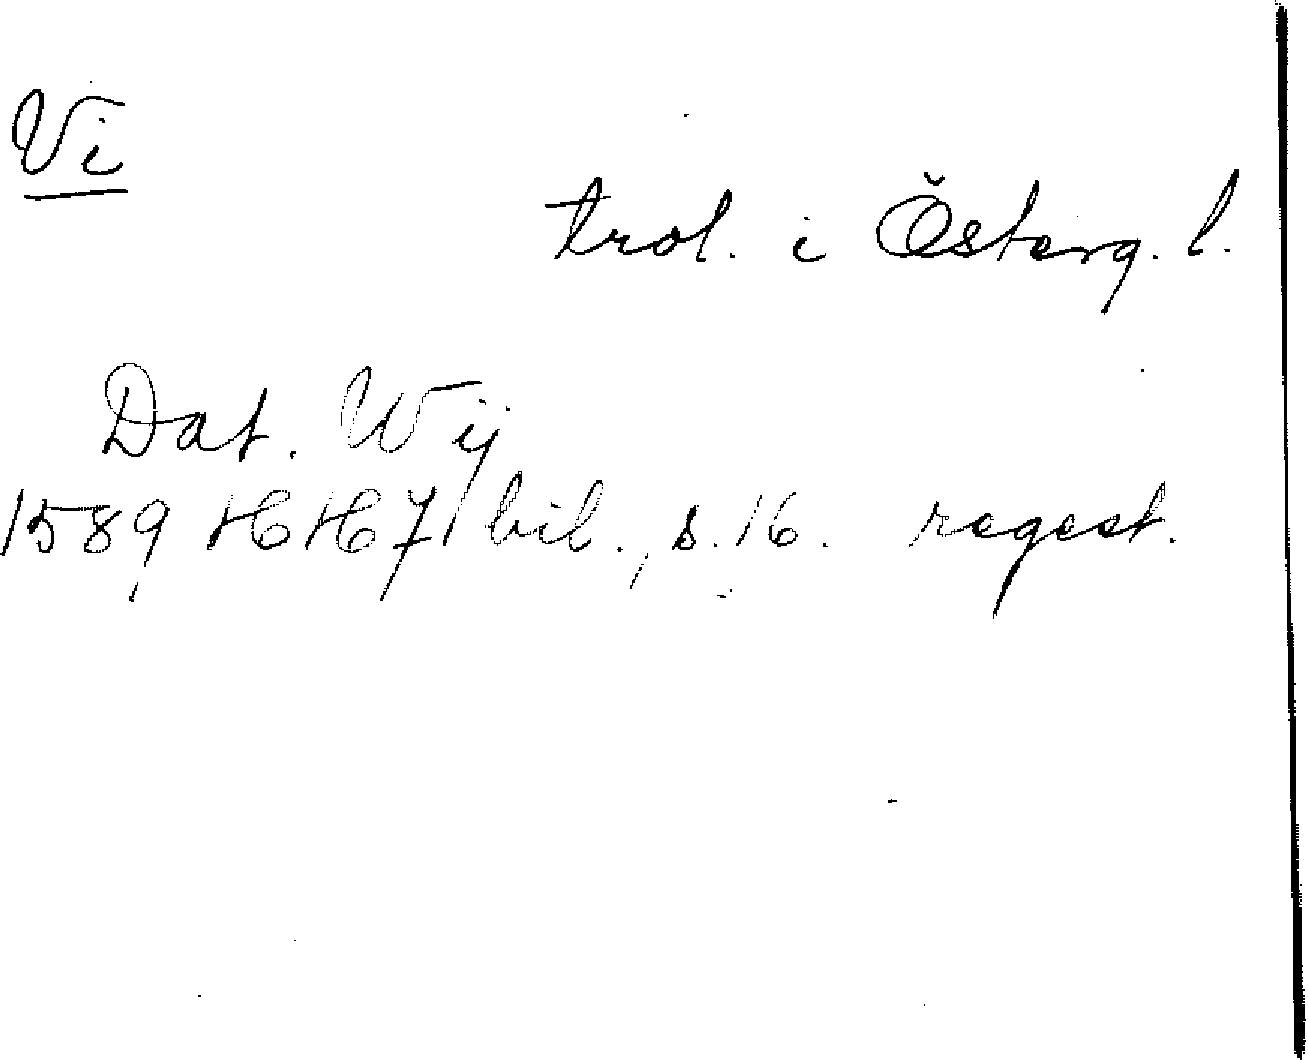 Vi
trol. i Österg. l.
Dat. Wij
1589 HH 7 bil., s. 16. regest.